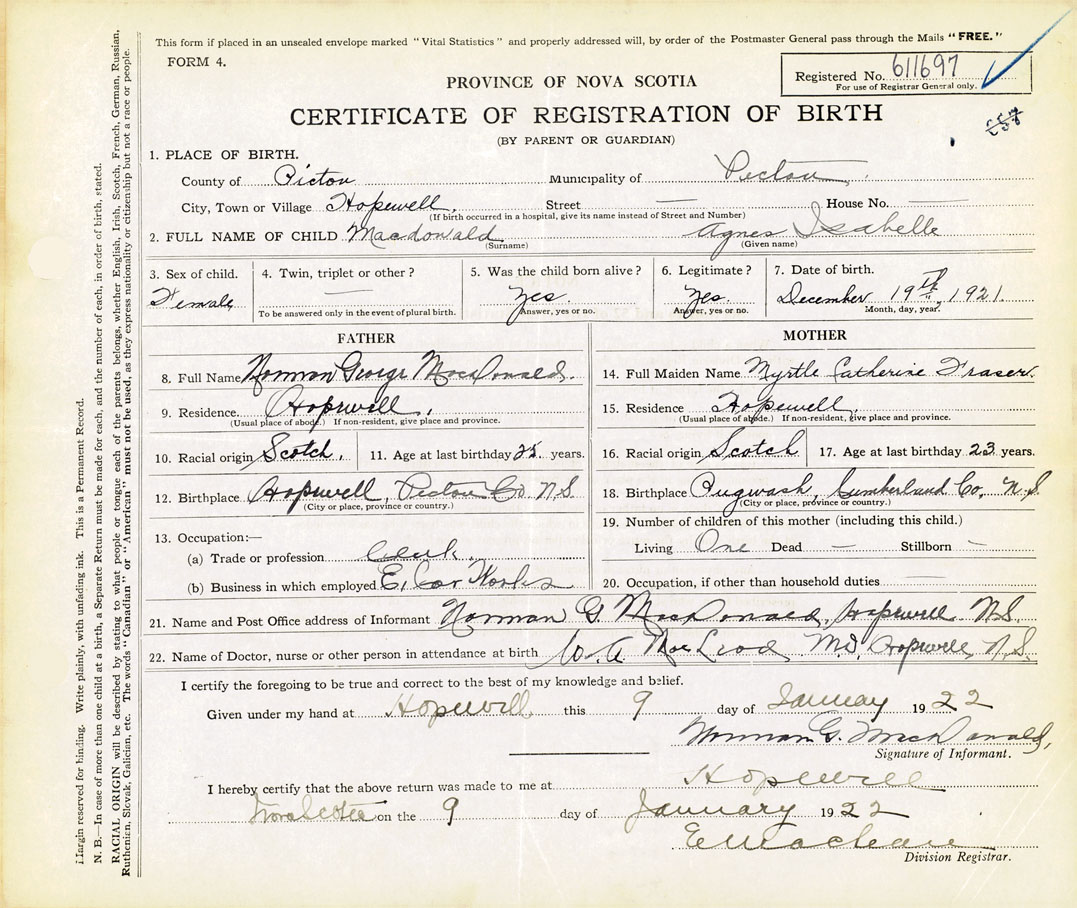 This form if placed in an unsealed envelope marked "Vital Statistics" and properly addressed will, by order of the Postmaster General pass through the Mails "FREE."
FORM 4.
Registered No. 611697
For use of Registrar General only.
PROVINCE OF NOVA SCOTIA
CERTIFICATE OF REGISTRATION OF BIRTH
(BY PARENT OR GUARDIAN)
1. PLACE OF BIRTH.
County of Pictou Municipality of Pictou
City, Town or Village Hopewell. Street — House No. —
(If birth occurred in a hospital, give its name instead of Street and Number)
2. FULL NAME OF CHILD Macdonald Agnes Isabelle
(Surname) (Given name)
3. Sex of child. 4. Twin, triplet or other? 5. Was the child born alive? 6. Legitimate? 7. Date of birth.
Female — Yes. Yes. December 19th, 1921.
To be answered only in the event of plural birth. Answer, yes or no. Answer, yes or no. Month, day, year.
FATHER
8. Full Name Norman George MacDonald.
9. Residence. Hopewell.
(Usual place of abode.) If non-resident, give place and province.
10. Racial origin Scotch. 11. Age at last birthday 25. years.
12. Birthplace Hopewell, Pictou Co N.S
(City or place, province or country.)
13. Occupation:—
(a) Trade or profession Clerk.
(b) Business in which employed E. Car Works
MOTHER
14. Full Maiden Name Myrtle Catherine Fraser.
15. Residence Hopewell.
(Usual place of abode.) If non-resident, give place and province.
16. Racial origin Scotch 17. Age at last birthday 23 years.
18. Birthplace Pugwash, Cumberland Co. N.S
(City or place, province or country.)
19. Number of children of this mother (including this child.)
Living One Dead — Stillborn —
20. Occupation, if other than household duties —
21. Name and Post Office address of Informant Norman G. MacDonald, Hopewell N.S.
22. Name of Doctor, nurse or other person in attendance at birth W. A MacLeod M.D. Hopewell, N.S.
I certify the foregoing to be true and correct to the best of my knowledge and belief.
Given under my hand at Hopewell this 9 day of January 1922
Norman G. MacDonald,
Signature of Informant.
I hereby certify that the above return was made to me at Hopewell
Nova Scotia on the 9 day of January 1922
E Maclean
Division Registrar.
Margin reserved for binding. Write plainly, with unfading ink. This is a Permanent Record.
N. B.—In case of more than one child at a birth, a Separate Return must be made for each, and the number of each, in order of birth, stated.
RACIAL ORIGIN will be described by stating to what people or tongue each of the parents belongs, whether English, Irish, Scotch, French, German, Russian,
Ruthenian, Slovak, Galician, etc. The words "Canadian" or "American" must not be used, as they express nationality or citizenship but not a race or people.